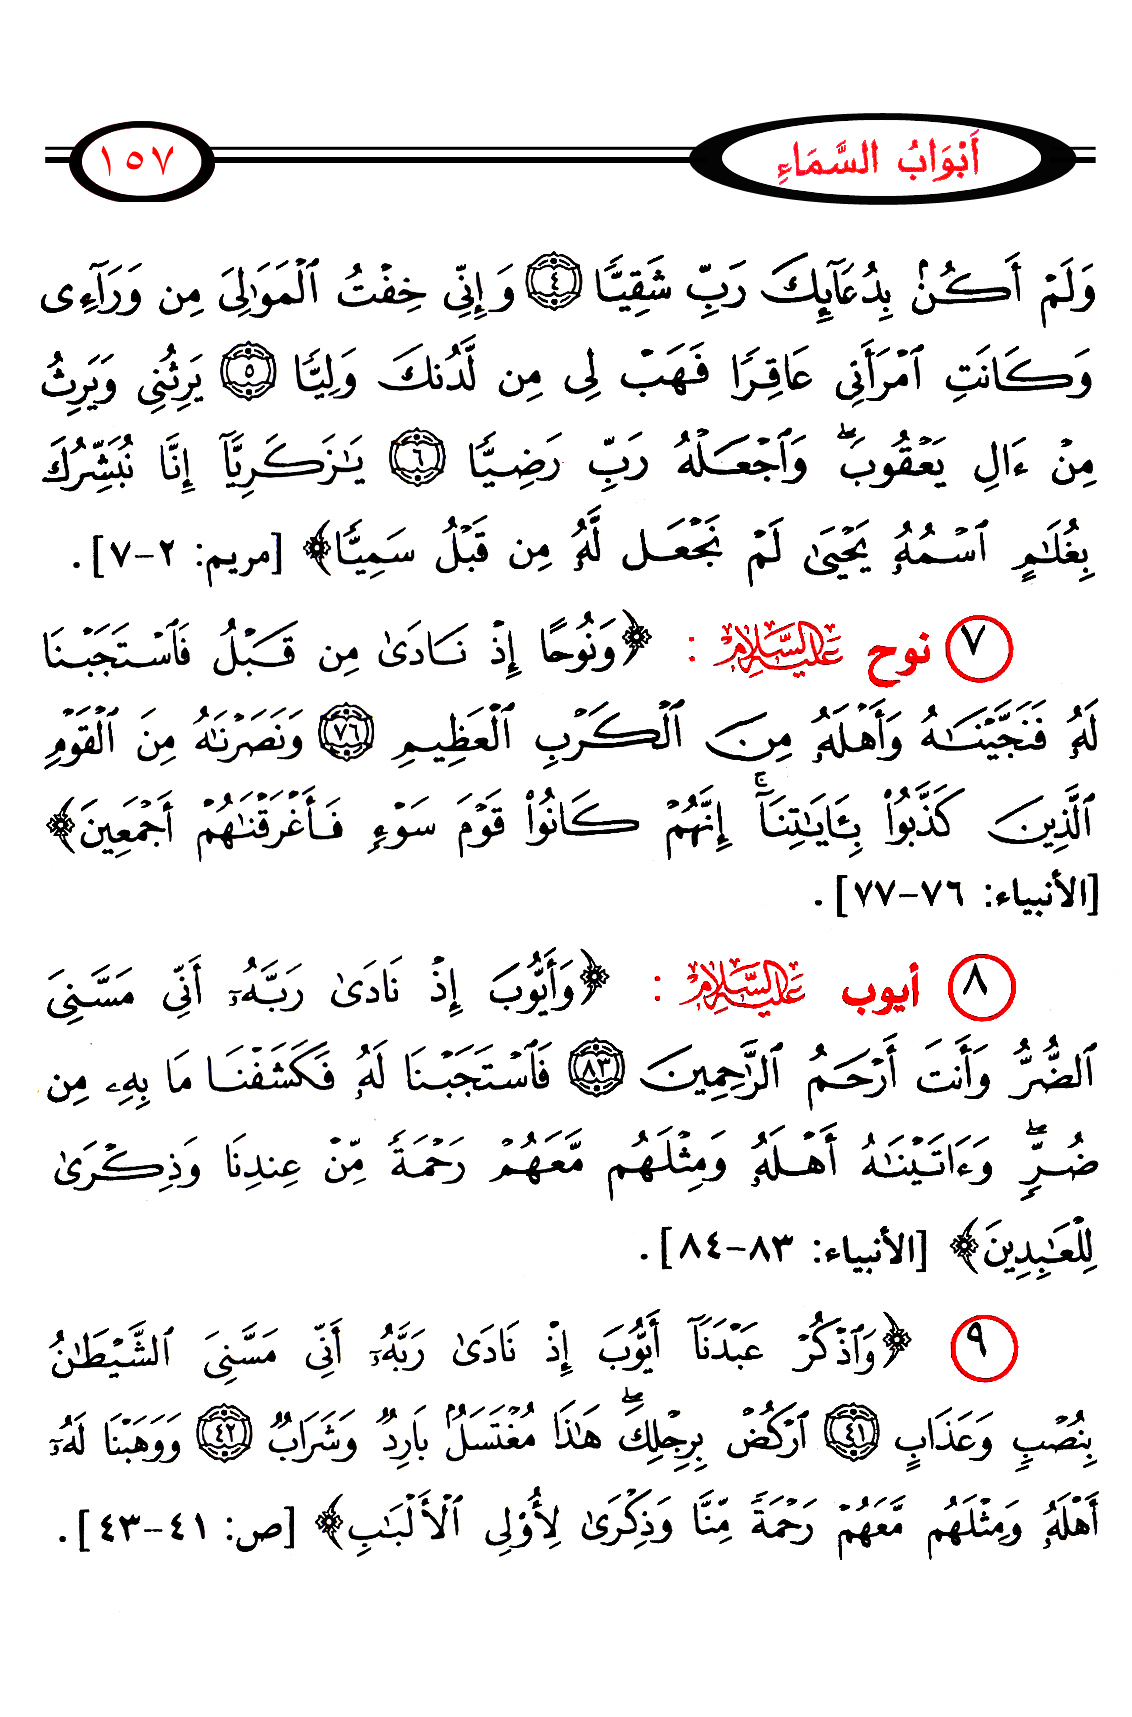 أَبْوَابُ السَّمَاءِ
١٥٧
وَلَمْ أَكُنۢ بِدُعَآئِكَ رَبِّ شَقِيًّا ﴿٤﴾ وَإِنِّي خِفْتُ ٱلْمَوَٰلِىَ مِن وَرَآءِى
وَكَانَتِ ٱمْرَأَتِى عَاقِرًا فَهَبْ لِى مِن لَّدُنكَ وَلِيًّا ﴿٥﴾ يَرِثُنِى وَيَرِثُ
مِنْ ءَالِ يَعْقُوبَ ۖ وَٱجْعَلْهُ رَبِّ رَضِيًّا ﴿٦﴾ يَٰزَكَرِيَّآ إِنَّا نُبَشِّرُكَ
بِغُلَٰمٍ ٱسْمُهُۥ يَحْيَىٰ لَمْ نَجْعَل لَّهُۥ مِن قَبْلُ سَمِيًّا﴾ [مريم: ٢-٧].
٧ نوح عَلَيْهِ السَّلَامُ : ﴿وَنُوحًا إِذْ نَادَىٰ مِن قَبْلُ فَٱسْتَجَبْنَا
لَهُۥ فَنَجَّيْنَٰهُ وَأَهْلَهُۥ مِنَ ٱلْكَرْبِ ٱلْعَظِيمِ ﴿٧٦﴾ وَنَصَرْنَٰهُ مِنَ ٱلْقَوْمِ
ٱلَّذِينَ كَذَّبُوا۟ بِـَٔايَٰتِنَآ ۚ إِنَّهُمْ كَانُوا۟ قَوْمَ سَوْءٍ فَأَغْرَقْنَٰهُمْ أَجْمَعِينَ﴾
[الأنبياء: ٧٦-٧٧].
٨ أيوب عَلَيْهِ السَّلَامُ : ﴿وَأَيُّوبَ إِذْ نَادَىٰ رَبَّهُۥٓ أَنِّى مَسَّنِىَ
ٱلضُّرُّ وَأَنتَ أَرْحَمُ ٱلرَّٰحِمِينَ ﴿٨٣﴾ فَٱسْتَجَبْنَا لَهُۥ فَكَشَفْنَا مَا بِهِۦ مِن
ضُرٍّ ۖ وَءَاتَيْنَٰهُ أَهْلَهُۥ وَمِثْلَهُم مَّعَهُمْ رَحْمَةً مِّنْ عِندِنَا وَذِكْرَىٰ
لِلْعَٰبِدِينَ﴾ [الأنبياء: ٨٣-٨٤].
٩ ﴿وَٱذْكُرْ عَبْدَنَآ أَيُّوبَ إِذْ نَادَىٰ رَبَّهُۥٓ أَنِّى مَسَّنِىَ ٱلشَّيْطَٰنُ
بِنُصْبٍ وَعَذَابٍ ﴿٤١﴾ ٱرْكُضْ بِرِجْلِكَ ۖ هَٰذَا مُغْتَسَلٌۢ بَارِدٌ وَشَرَابٌ ﴿٤٢﴾ وَوَهَبْنَا لَهُۥٓ
أَهْلَهُۥ وَمِثْلَهُم مَّعَهُمْ رَحْمَةً مِّنَّا وَذِكْرَىٰ لِأُو۟لِى ٱلْأَلْبَٰبِ﴾ [ص: ٤١-٤٣].